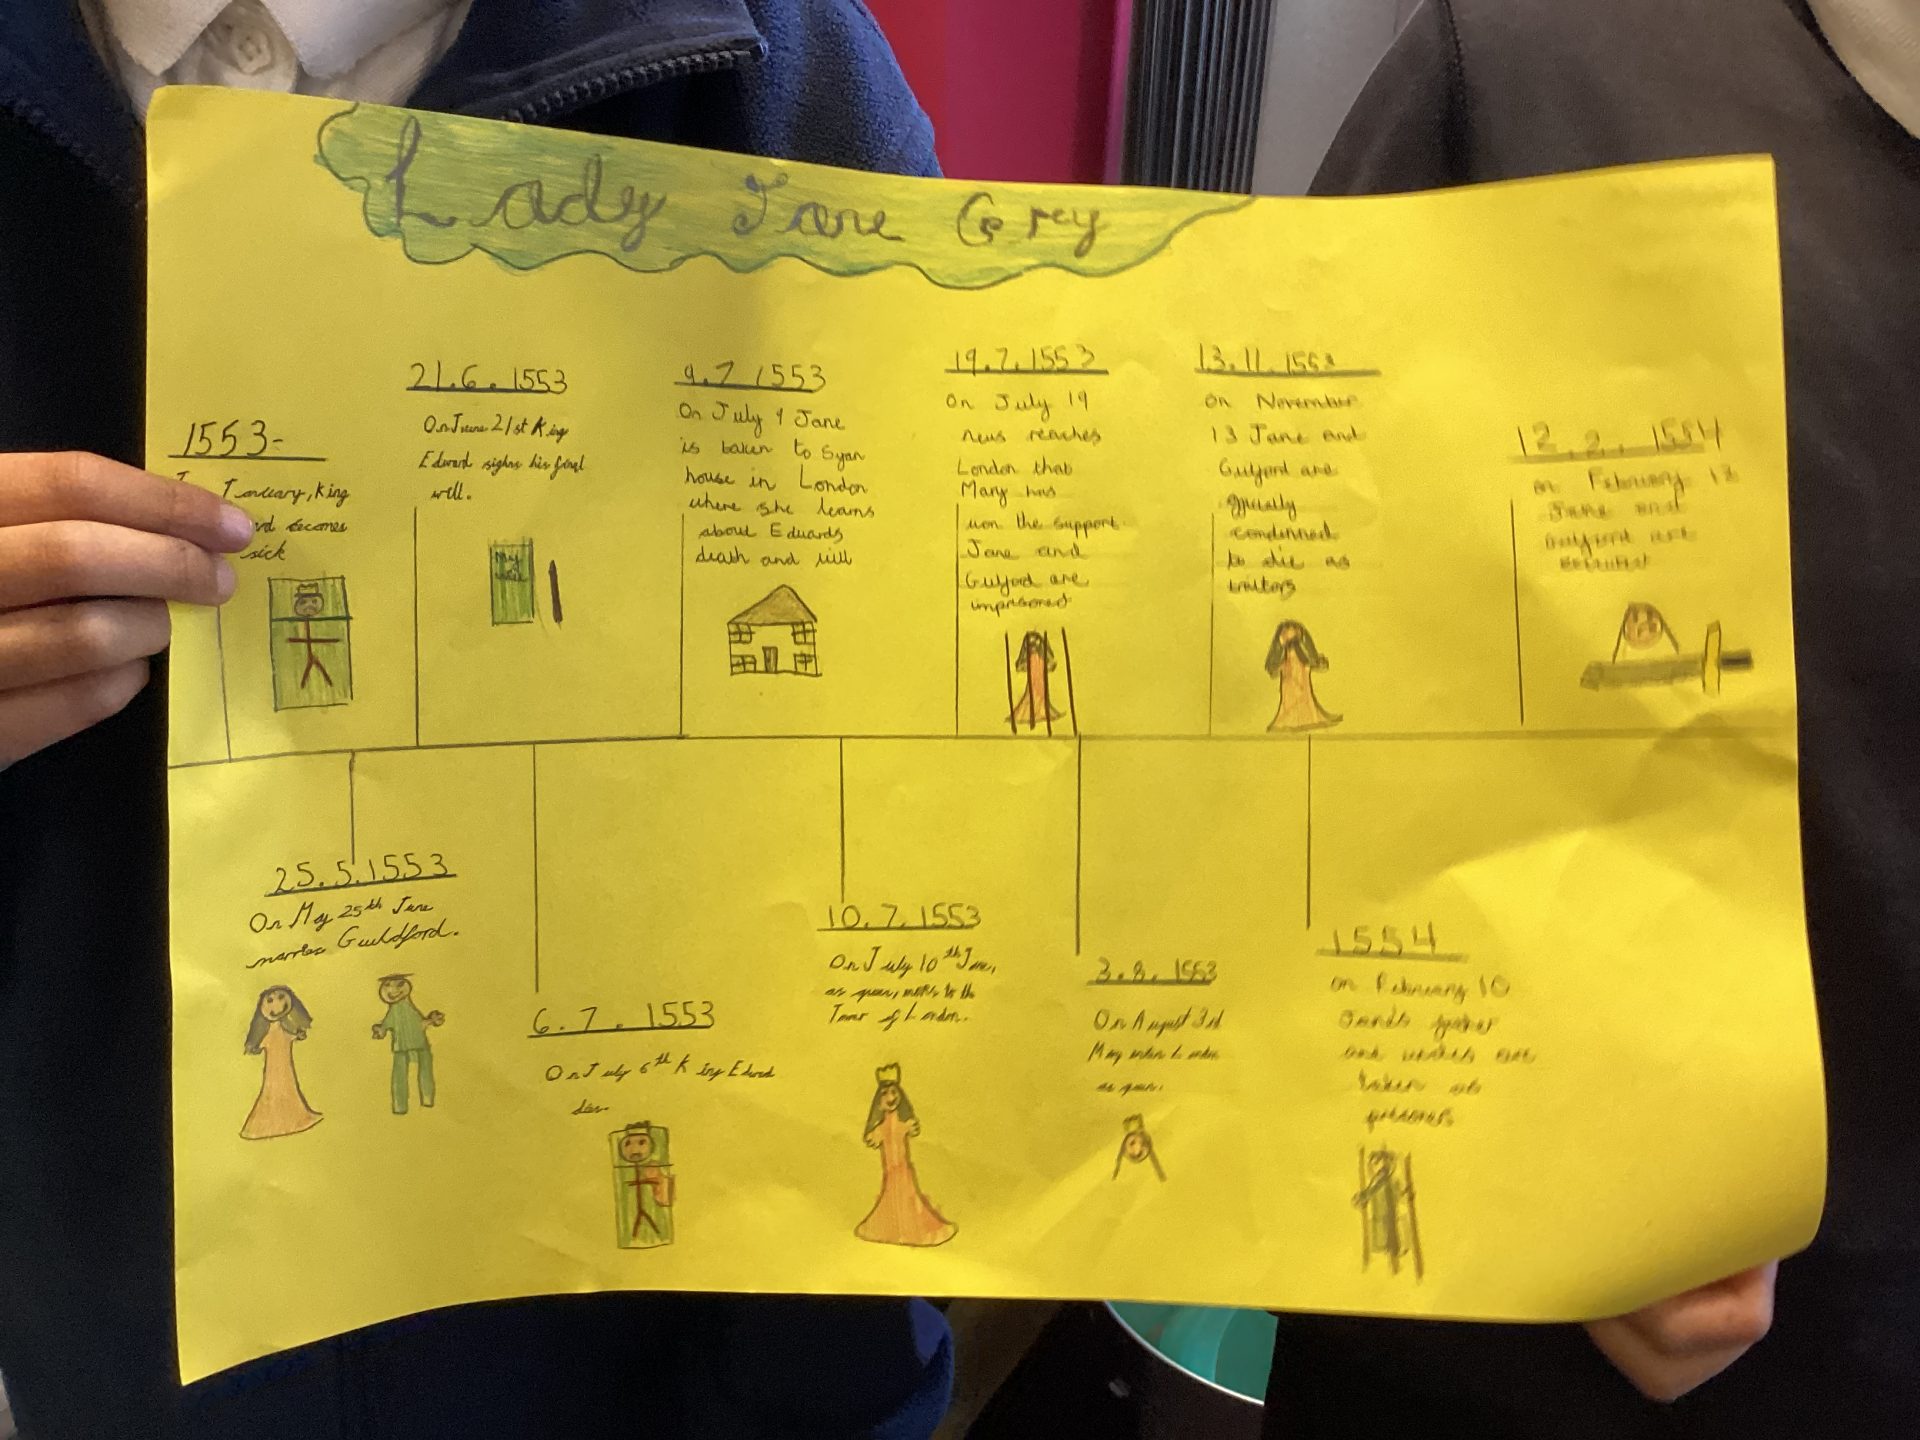 Lady Jane Grey
1553-
January, King
becomes
sick
21.6.1553
On June 21st King
Edward signs his final
will.
My
will
9.7 1553
On July 9 Jane
is taken to Syan
house in London
where she learns
about Edwards
death and will
19.7.1553
On July 19
news reaches
London that
Mary has
won the support
Jane and
Guljord are
imprisoned
13.11.1553
on November
13 Jane and
Guljord are
officially
condemned
to die as
traitors
12.2.1554
on February 12
Jane and
Guljord are
25.5.1553
On May 25th Jane
marries Guildford.
6.7.1553
On July 6th King Edward
dies.
10.7.1553
On July 10th Jane,
as queen, moves to the
Tower of London.
3.8.1553
On August 3rd
Mary enters London
as queen.
1554
on February 10
are
taken as
prisoners